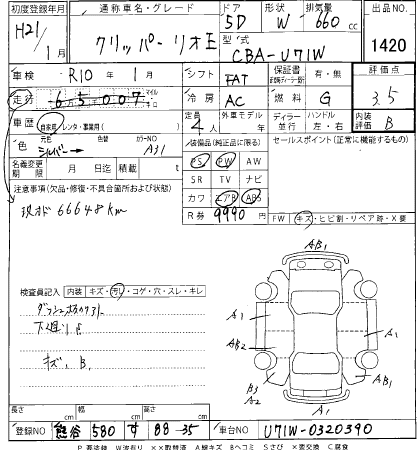 初度登録年月 通称車名・グレード ドア 形状 排気量 出品NO.
H21/1月 クリッパーリオ E 5D W 660cc 1420
型式 CBA-U71W
車検 R10年 1月 シフト FAT 保証書 有・無 評価点
走行 65,007 マイル km 冷房 AC 燃料 G 3.5
車歴 自家用・レンタ・事業用( ) 定員 4人 外車モデル ディーラー 並行 ハンドル 左・右 内装評価 B
色 シルバー 色替 カラーNO A31
装備品(純正品に限る) セールスポイント(正常に機能するもの)
名義変更期限 月 日迄 積載 t
PS PW AW
SR TV ナビ
カワ エアB ABS
R券 9990円
注意事項(欠品・修復・不具合箇所および状態)
現オド 66648km
FW キズ・ヒビ割・リペア跡・X要
検査員記入 内装 キズ・汚れ・コゲ・穴・スレ・キレ
下廻りS
キズ、B、
AB1
A1 A1
AB2
B3 A2 AB1
A1
長さ cm 幅 cm 高さ cm
登録NO 熊谷 580 す 88-35 車台NO U71W-0320390
P 要塗装 W波有り ××取替済 A線キズ Bヘコミ Sさび ×要交換 C腐食